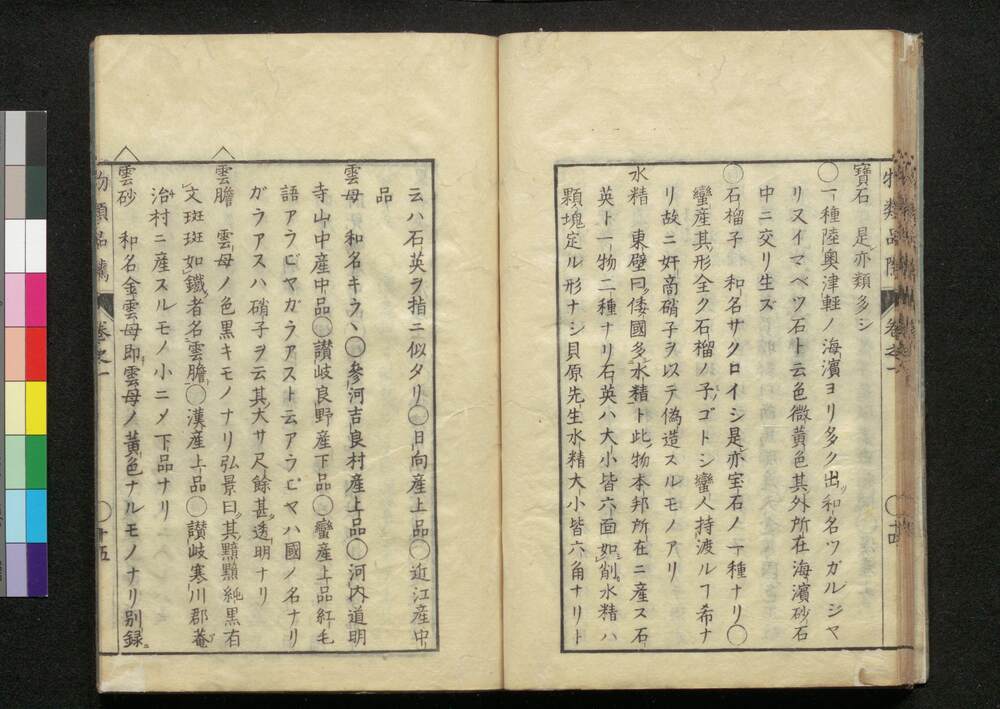 物類品隲 卷之一 〇十四
寶石 是亦類多シ
〇一種陸奧津輕ノ海濱ヨリ多ク出ツ和名ツガルシマ
リ又イマベツ石ト云色微黄色其外所在海濱砂石
中ニ交リ生ズ
〇石榴子 和名サクロイシ是亦宝石ノ一種ナリ〇
蠻産其形全ク石榴ノ子ノゴトシ蠻人持渡ルヿ希ナ
リ故ニ奸商硝子ヲ以テ偽造スルモノアリ
水精 東壁曰倭國多水精ト此物本邦所在ニ産ス石
英ト一物二種ナリ石英ハ大小皆六面如削水精ハ
顆塊定ル形ナシ貝原先生水精大小皆六角ナリト
云ハ石英ヲ指ニ似タリ〇日向産上品〇近江産中
品
雲母 和名キラヽ〇參河吉良村産上品〇河内道明
寺山中産中品〇讃岐良野産下品〇蠻産上品紅毛
語アラビヤガラアスト云アラビヤハ國ノ名ナリ
ガラアスハ硝子ヲ云其大サ尺餘甚透明ナリ
雲膽 雲母ノ色黒キモノナリ弘景曰其黯黯純黒有
文斑斑如鐵者名雲膽〇漢産上品〇讃岐寒川郡菴
治村ニ産スルモノ小ニメ下品ナリ
雲砂 和名金雲母即雲母ノ黄色ナルモノナリ別録ニ
物類品隲 卷之一 〇十五